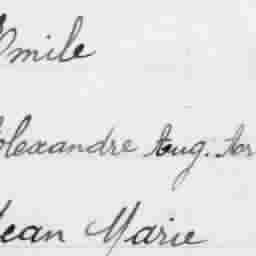 Emile
Alexandre Aug.
Jean Marie